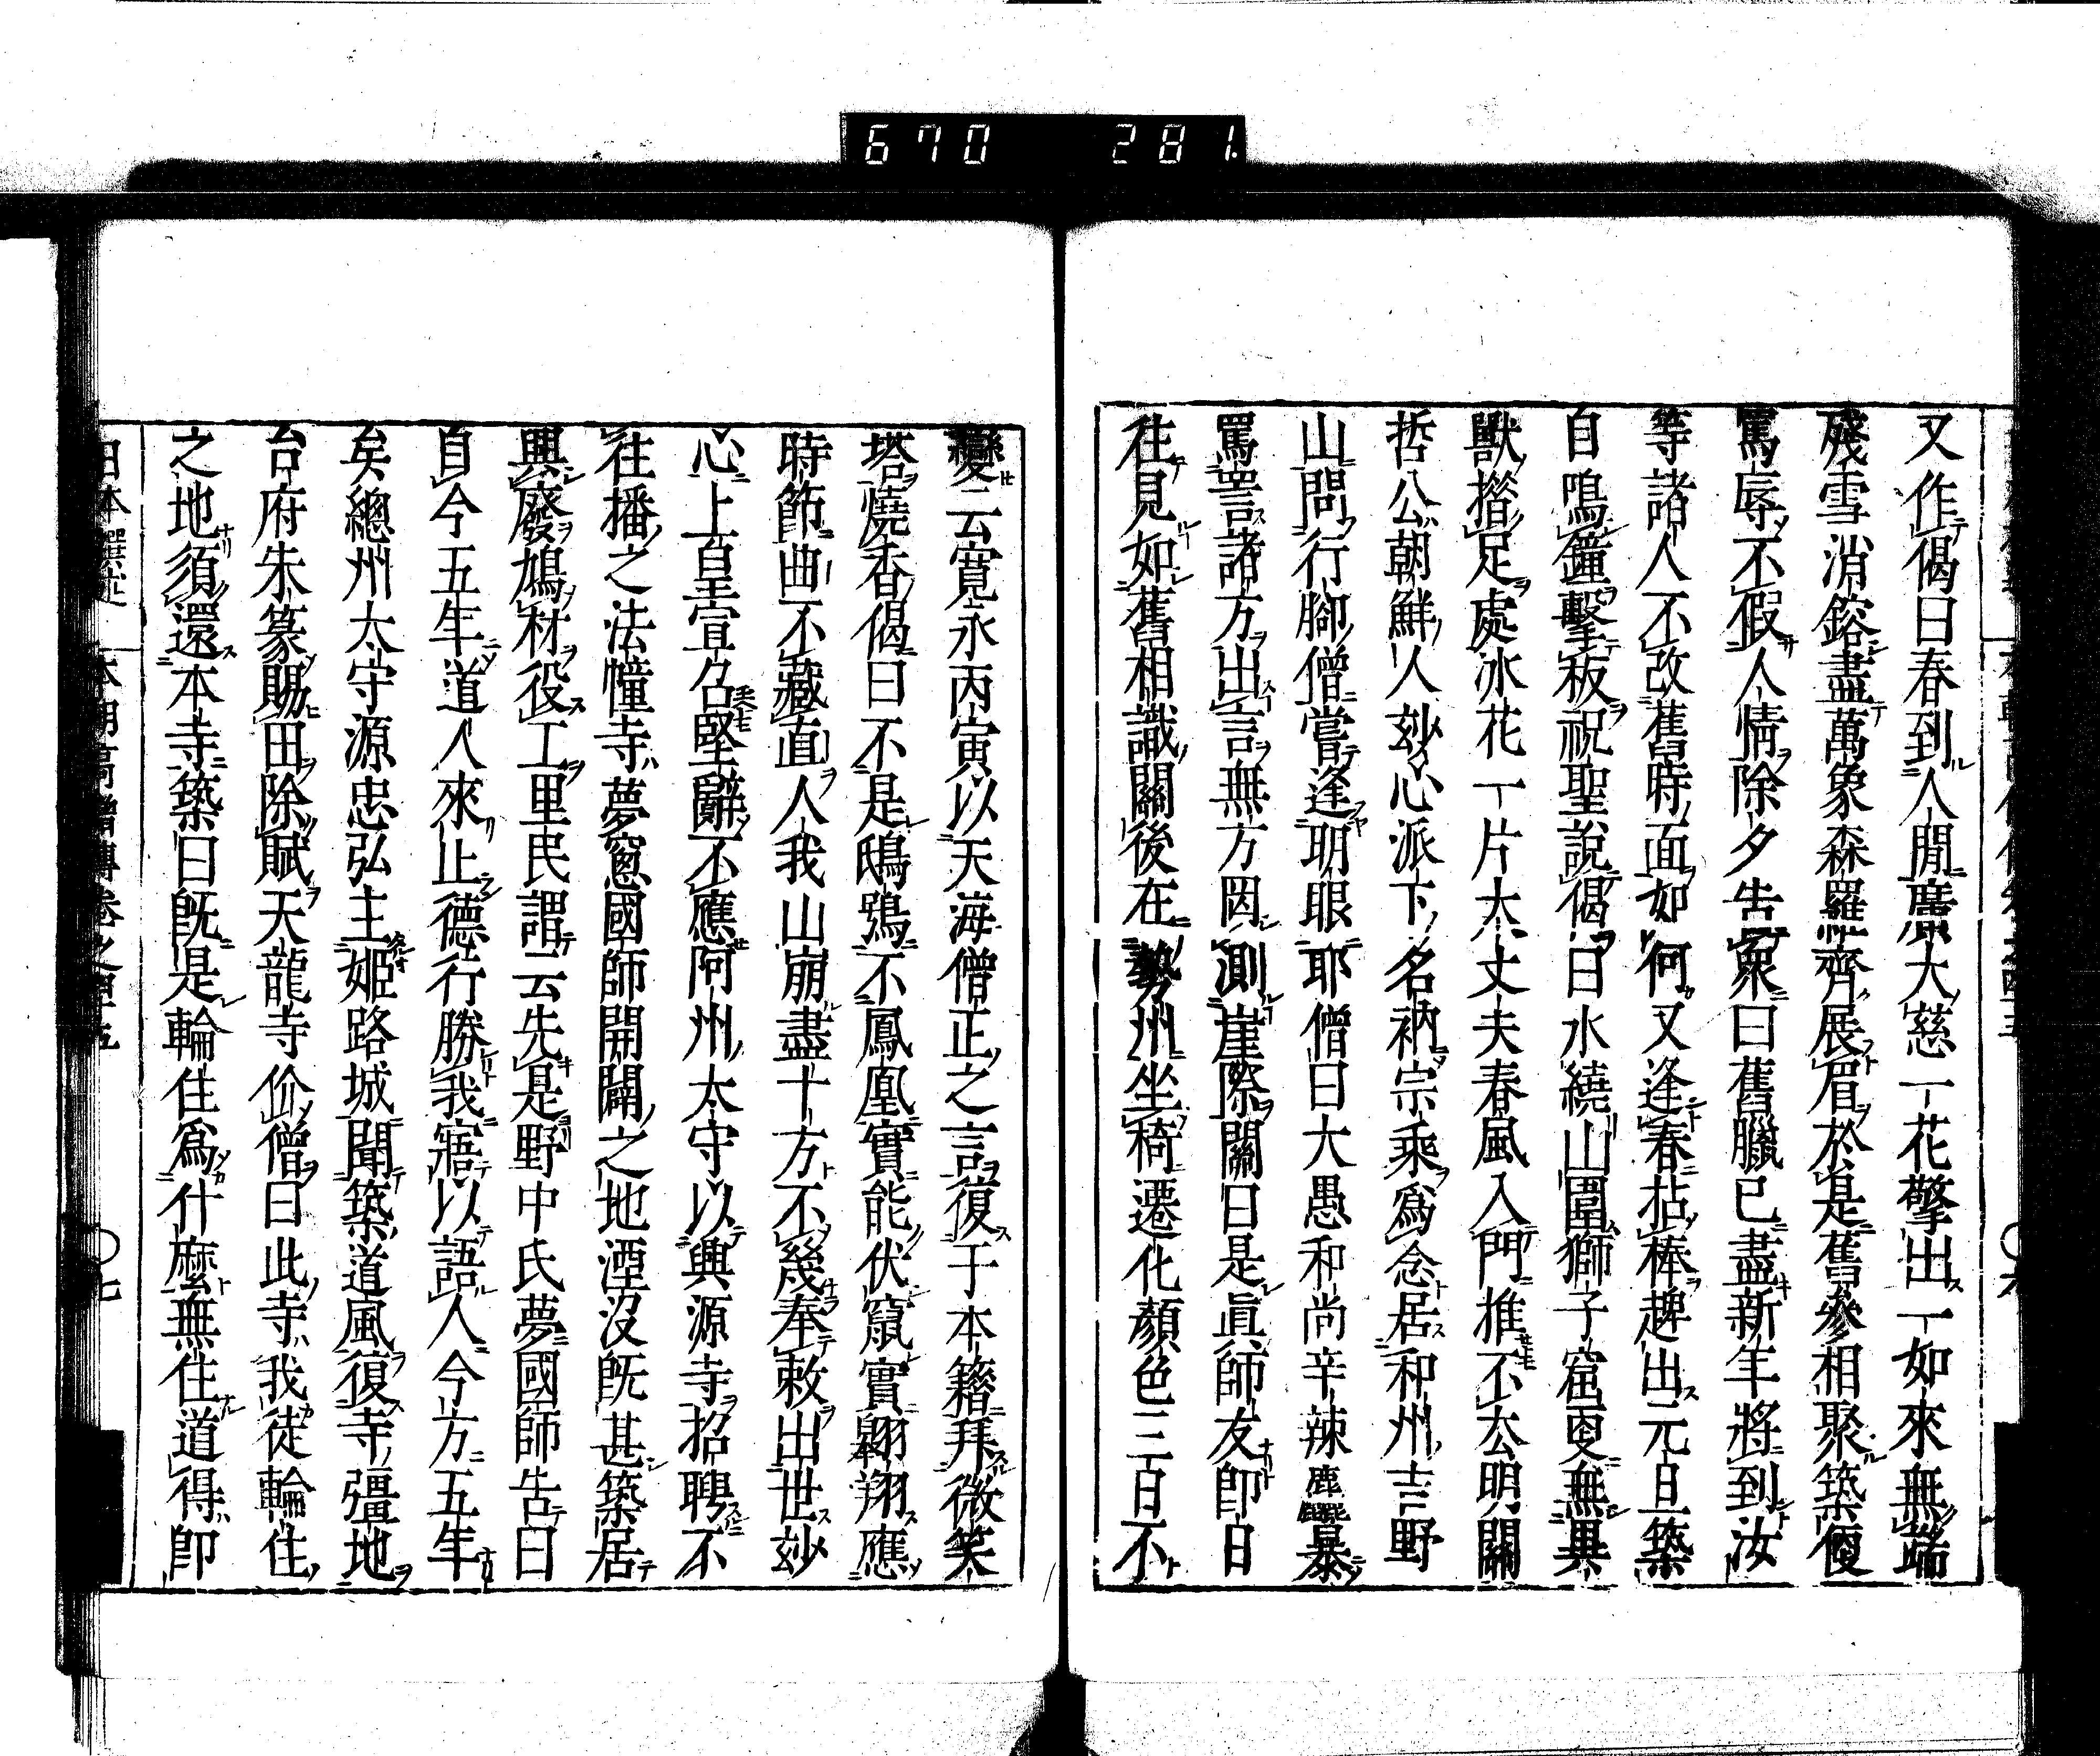 670 281.
又作偈曰春到人間廣大慈一花擎出一如來無端
殘雪消鎔盡萬象森羅齊展眉於是舊參相聚築便
罵辱不假人情除夕告衆曰舊臘已盡新年將到汝
等諸人不改舊時面如何又逢春拈棒趕出元旦築
自鳴鐘擊板祝聖說偈曰水繞山圍獅子窟更無異
獸㨪足處冰花一片大丈夫春風入門推不去明關
哲公朝鮮人玅心派下名衲宗乘爲念居和州吉野
山問行脚僧嘗逢明眼耶僧曰大愚和尚辛辣麤暴
罵詈諸方出言無方罔測崖際關曰是眞師友即日
往見如舊相識關後在勢州坐椅遷化顏色三日不
變云寛永丙寅以天海僧正之言復于本籍拜微笑
塔燒香偈曰不是鴟鴞不鳳凰實能伏竄實翺翔應
時節曲不藏直人我山崩盡十方不幾奉敕出世玅
心上皇宣召堅辭不應阿州太守以興源寺招聘不
往播之法幢寺夢窻國師開闢之地湮沒既甚築居
興廢鳩材役工里民謂云先是野中氏夢國師告曰
自今五年道人來止德行勝我寤以語人今方五年
矣總州太守源忠弘主姬路城聞築道風復寺彊地
台府朱篆賜田除賦天龍寺价僧曰此寺我徒輪住
之地須還本寺築曰既是輪住爲什麼無住道得即
日本撰述 本朝高僧傳卷之四十五 〇七